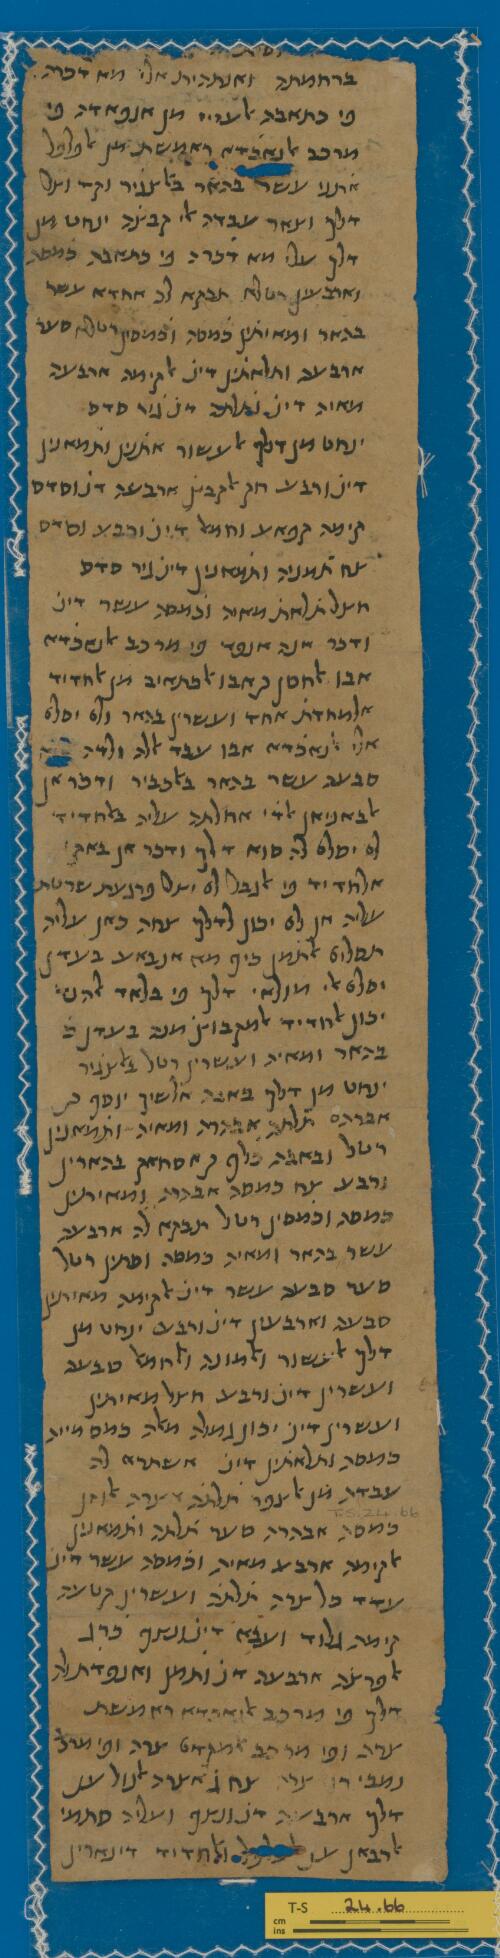 ברחמתה ואנתהית אלי מא דכרה
פי כתאבה לעזיז מן אנפאדה פי
מרכב לנאכדא ראמשת מן לפלפל
אתני עשר בהאר בלצגיר וקד וצל
דלך וצאר עבדה לי קבצה ינחט מן
דלך עלי מא דכרה פי כתאבה כמסה
וארבעין רטל תבקא לה אחדא עשר
בהאר ומאיתין כמסה וכמסין רטל סער
ארבעה ותלאתין דינ לקימה ארבעה
מאיה דינ ותלתה דנניר סדס
ינחט מן דלך לעשור אתנין ותמאנין
דינ ורבע חק לקבץ ארבעה דנ וסדס
קימה קפאע וחמל דינ ורבע וסדס
צח תמניה ותמאנין דינניר סדס
חצל תלאת מאיה וכמסה עשר דינ
ודכר אנה אנפד פי מרכב לנאכדא
אבו לחסן בן אבו לכתאיב מן לחדיד
אלמחדת אחד ועשרין בהאר ולם יסלם
אלי לנאכדא אבו עבד אללה ולדה
סבעה עשר בהאר בלכביר ודכר אן
לבאניאן לדי אחלתה עליה בלחדיד
לם יסלם לה סוא דלך ודכר אן באקי
אלחדיד פי לנבל לם יצל פרגעת שרטת
עליה אן לם יכון לדלך צחה כאן עליה
תסלים לתמן כיף מא אנבאע בעדן
יסלם לי מולאי דלך פי בלאד להנד
יכון לחדיד למקבוץ מנה בעדן
בהאר ומאיה ועשרין רטל בלצגיר
ינחט מן דלך באבה אלשיך יוסף בן
אברהם תלתה אבהרה ומאיה ותמאנין
רטל ובאבה כלף בן אסחאק בהארין
ורבע צח כמסה אבהרה ומאיתין
כמסה וכמסין רטל תבקא לה ארבעה
עשר בהאר ומאיה כמסה וסתין רטל
סער סבעה עשר דינ לקימה מאיתין
סבעה וארבעין דינ ורבע ינחט מן
דלך לעשור ולמונה ולחמל סבעה
ועשרין דינ ורבע חצל מאיתין
ועשרין דינ יכון גמלה מאלה כמס מייה
כמסה ותלאתין דינ אשתרא לה
עבדה מן לצפר תלתה צרה לוזן
כמסה אבהרה סער תלתה ותמאנין
לקימה ארבע מאיה וכמסה עשר דינ
עדד כל צרה תלתה ועשרין קטעה
קימה גלוד ועבא דינ ונצף כרג
לפרצה ארבעה דינ ותמן ואנפדת לה
דלך פי מרכב לנאכדא ראמשת
צרה ופי מרכב למקדם צרה ופי מרכב
צרה צח ג אצרה לנול ען
דלך ארבעה דינ ונצף ועליה סתמי
לרבאן ען לפלפל ולחדיד דינארין
T-S 24.66
T-S 24.66
cm
ins